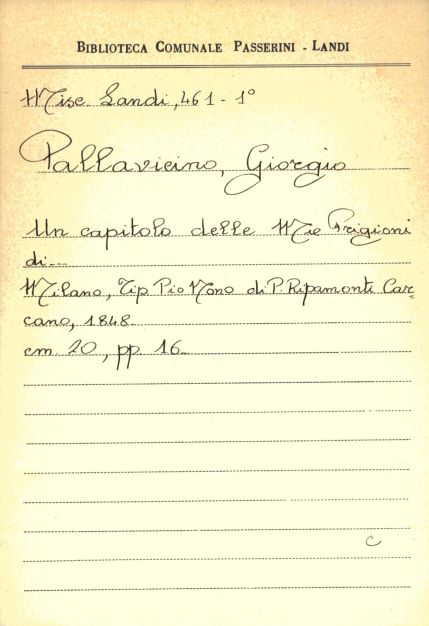 BIBLIOTECA COMUNALE PASSERINI - LANDI
Misc. Landi, 461 - 1°
Pallavicino, Giorgio
Un capitolo delle Mie Prigioni
di...
Milano, Tip. Pio Nono di P. Ripamonti Car=
cano, 1848.
cm. 20, pp. 16.
C